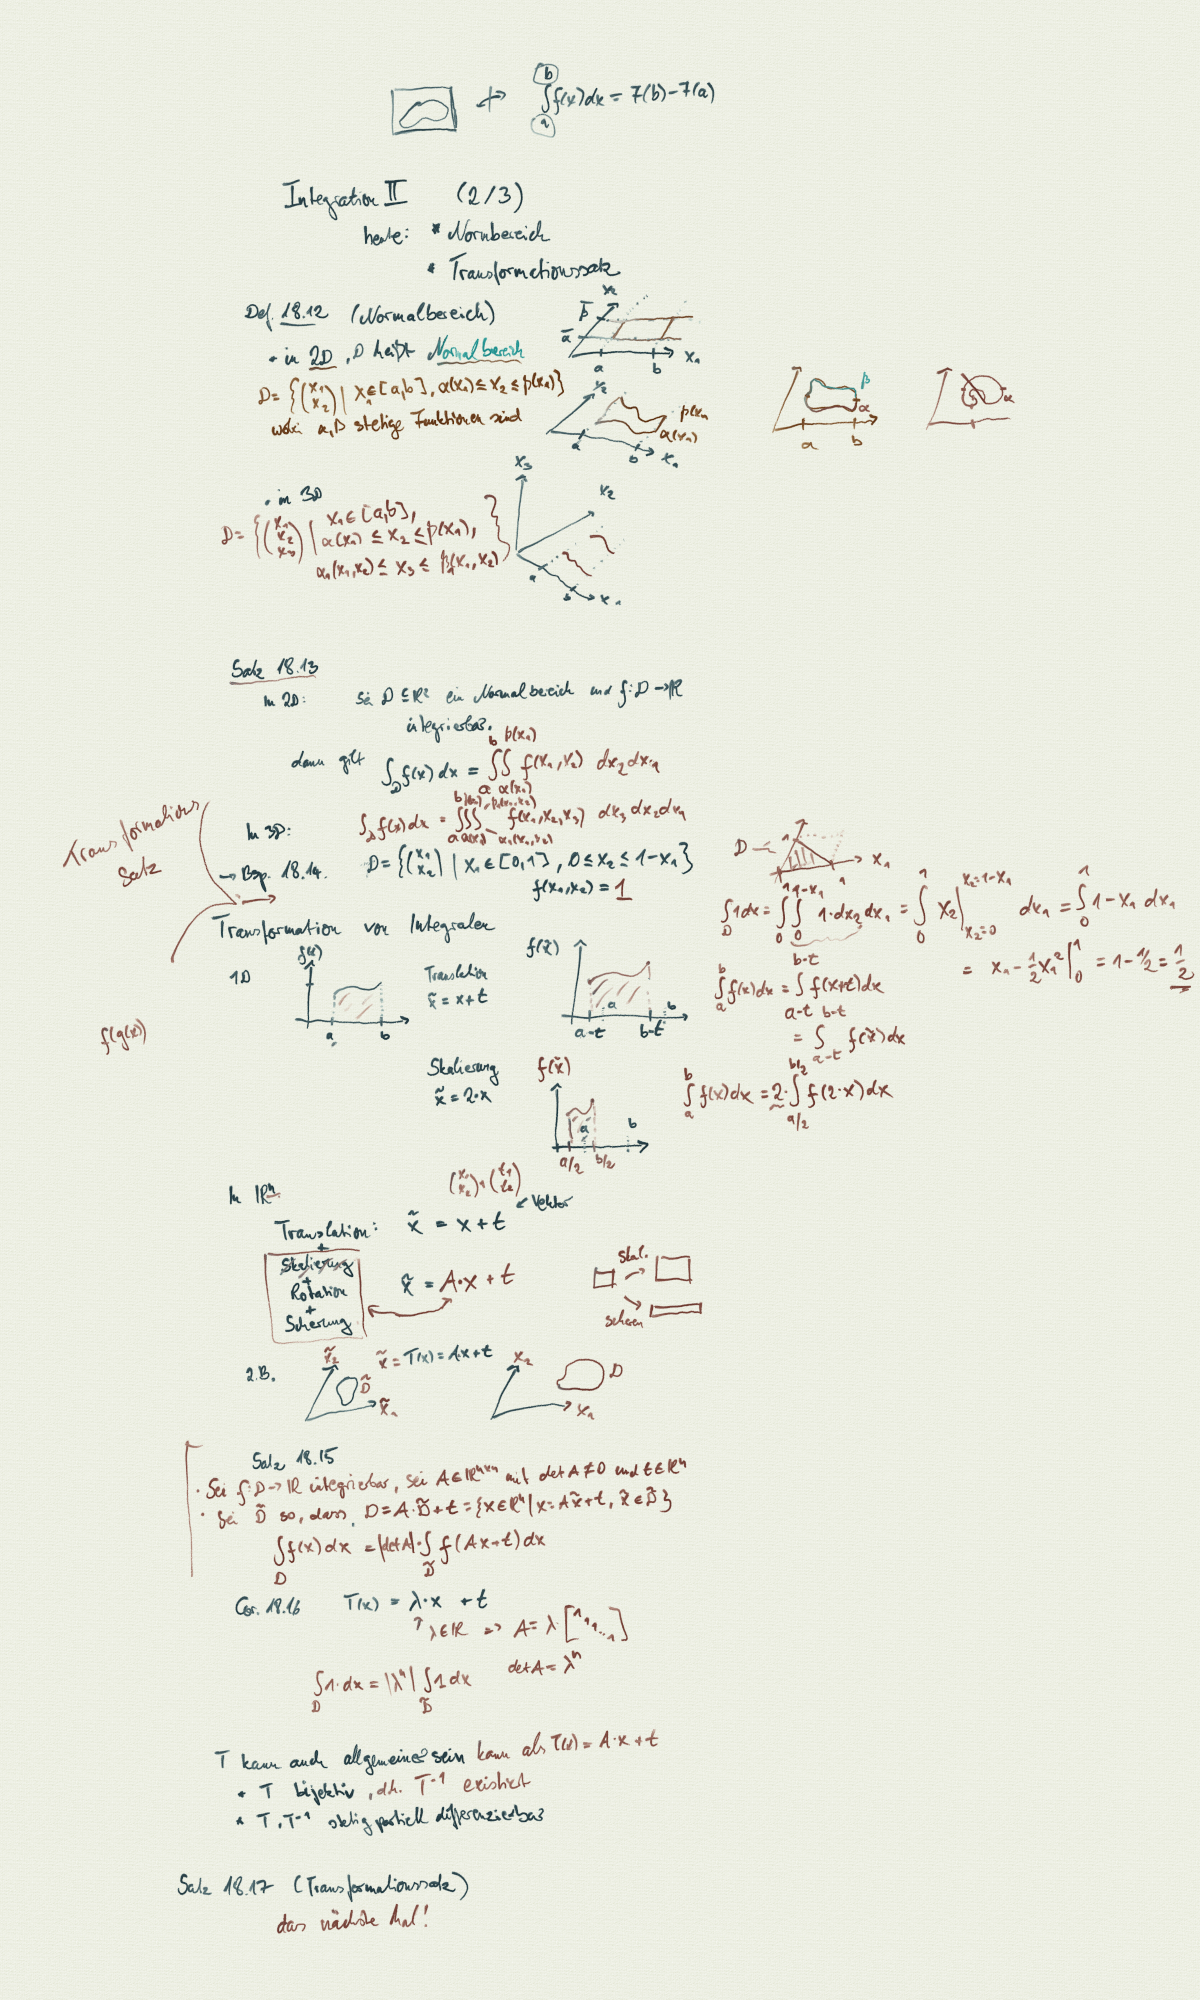 ∫_a^b f(x)dx = F(b)-F(a)
Integration II (2/3)
heute: * Normbereich
* Transformationssatz
Def. 18.12 (Normalbereich)
• in 2D, D heißt Normalbereich
D = {(x₁ x₂) | x₁ ∈ [a,b], α(x₁) ≤ x₂ ≤ β(x₁)}
wobei α,β stetige Funktionen sind
x₂
β̄
ᾱ
a b x₁
x₂
β(x₁)
α(x₁)
a b x₁
β
α
a b
α
• in 3D
D = {(x₁ x₂ x₃) | x₁ ∈ [a,b],
α(x₁) ≤ x₂ ≤ β(x₁),
α₁(x₁,x₂) ≤ x₃ ≤ β₁(x₁,x₂)}
x₃
x₂
a
b x₁
Satz 18.13
In 2D: Sei D ⊆ ℝ² ein Normalbereich und f: D → ℝ
integrierbar.
dann gilt ∫_D f(x) dx = ∫_a^b ∫_α(x₁)^β(x₁) f(x₁,x₂) dx₂ dx₁
In 3D: ∫_D f(x) dx = ∫_a^b ∫_α(x₁)^β(x₁) ∫_α₁(x₁,x₂)^β₁(x₁,x₂) f(x₁,x₂,x₃) dx₃ dx₂ dx₁
Transformations
Satz
→ Bsp. 18.14. D = {(x₁ x₂) | x₁ ∈ [0,1], 0 ≤ x₂ ≤ 1-x₁}
f(x₁,x₂) = 1
D 1 1 x₁
∫_D 1dx = ∫_0^1 ∫_0^(1-x₁) 1·dx₂ dx₁ = ∫_0^1 x₂ |_(x₂=0)^(x₂=1-x₁) dx₁ = ∫_0^1 1-x₁ dx₁
= x₁ - ½x₁² |_0^1 = 1-½ = ½
Transformation von Integralen
1D
f(x)
a b
Translation
x̃ = x+t
f(x̃)
a-t a b-t b
∫_a^b f(x)dx = ∫_(a-t)^(b-t) f(x+t)dx
= ∫_(a-t)^(b-t) f(x̃)dx
f(g(x))
Skalierung
x̃ = 2·x
f(x̃)
a/2 a b/2 b
∫_a^b f(x)dx = 2·∫_(a/2)^(b/2) f(2·x)dx
In ℝⁿ
(x₁ x₂)+(t₁ t₂)
Translation: x̃ = x+t ↙ Vektor
+
Skalierung
+
Rotation
+
Scherung
x̃ = A·x + t
Skal.
scheren
z.B.
x̃₂ D̃ x̃₁
x̃ = T(x) = A·x+t
x₂ D x₁
Satz 18.15
• Sei f: D → ℝ integrierbar, sei A ∈ ℝⁿˣⁿ mit det A ≠ 0 und t ∈ ℝⁿ
• Sei D̃ so, dass D = A·D̃+t = {x ∈ ℝⁿ | x = Ax̃+t, x̃ ∈ D̃}
∫_D f(x) dx = |det A|·∫_D̃ f(Ax+t) dx
Cor. 18.16 T(x) = λ·x + t
↑ λ∈ℝ ⇒ A = λ·[1 1 1 ... 1]
∫_D 1·dx = |λⁿ| ∫_D̃ 1 dx det A = λⁿ
T kann auch allgemeiner sein kann als T(x) = A·x+t
* T bijektiv, d.h. T⁻¹ existiert
* T, T⁻¹ stetig partiell differenzierbar
Satz 18.17 (Transformationssatz)
das nächste Mal!